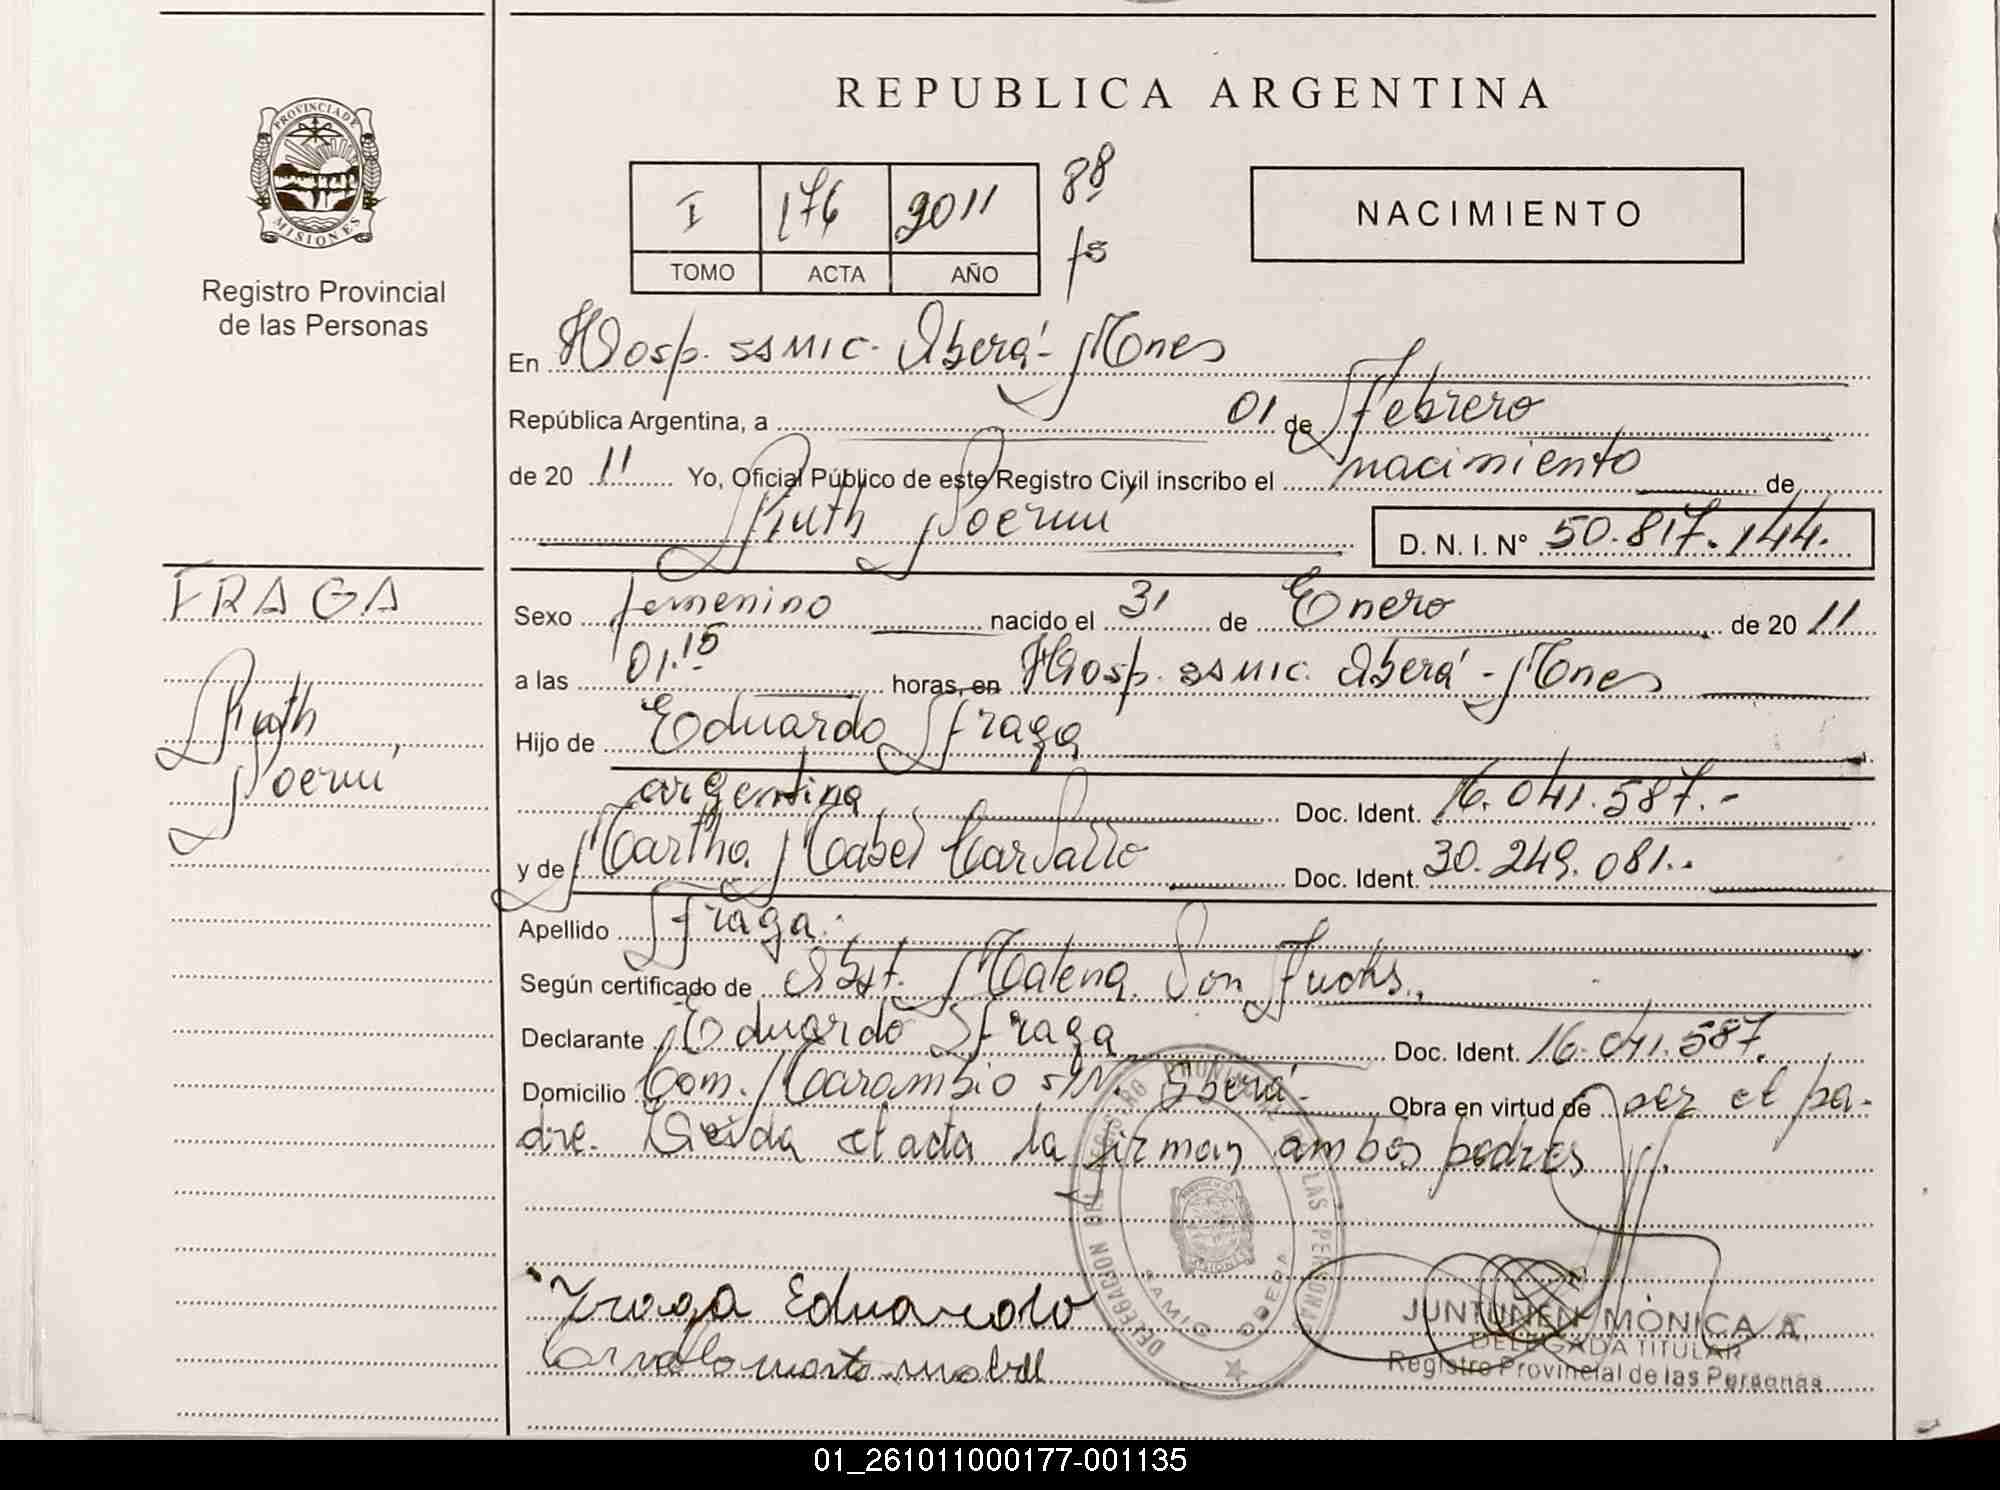 REPUBLICA ARGENTINA
PROVINCIA DE
MISIONES
Registro Provincial
de las Personas
I 176 2011 88
TOMO ACTA AÑO fs
NACIMIENTO
En Hosp. SAMIC. Oberá - Mnes
República Argentina, a 01 de Febrero
de 20 11 Yo, Oficial Público de este Registro Civil inscribo el nacimiento de
Ruth Noemí D. N. I. Nº 50.817.144.
FRAGA
Ruth
Noemí
Sexo femenino nacido el 31 de Enero de 20 11
a las 01.15 horas, en Hosp. SAMIC. Oberá - Mnes
Hijo de Eduardo Fraga
argentina Doc. Ident. 16.041.587.-
y de Martha Mabel Carvallo Doc. Ident. 30.249.081.-
Apellido Fraga.
Según certificado de Obst. Malena Von Fuchs.
Declarante Eduardo Fraga Doc. Ident. 16.041.587.
Domicilio Com. Marambio S/N. Oberá - Obra en virtud de ser el pa-
dre. Leída el acta la firman ambos padres
Fraga Eduardo
Carvallo marta mabel
DELEGACION DEL REGISTRO PROVINCIAL DE LAS PERSONAS
OBERA
JUNTUNEN MÓNICA A.
DELEGADA TITULAR
Registro Provincial de las Personas
01_261011000177-001135